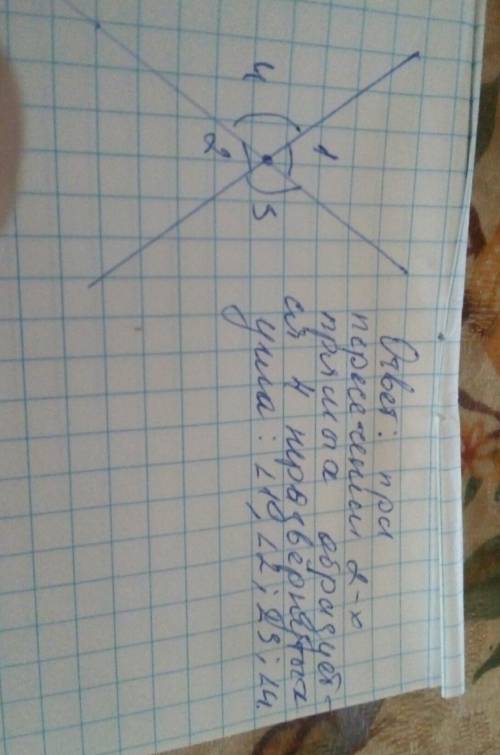 4
1
2
3
Ответ: при
пересечении 2-х
прямых образует-
ся 4 неразвёрнутых
угла: ∠1; ∠2; ∠3; ∠4.